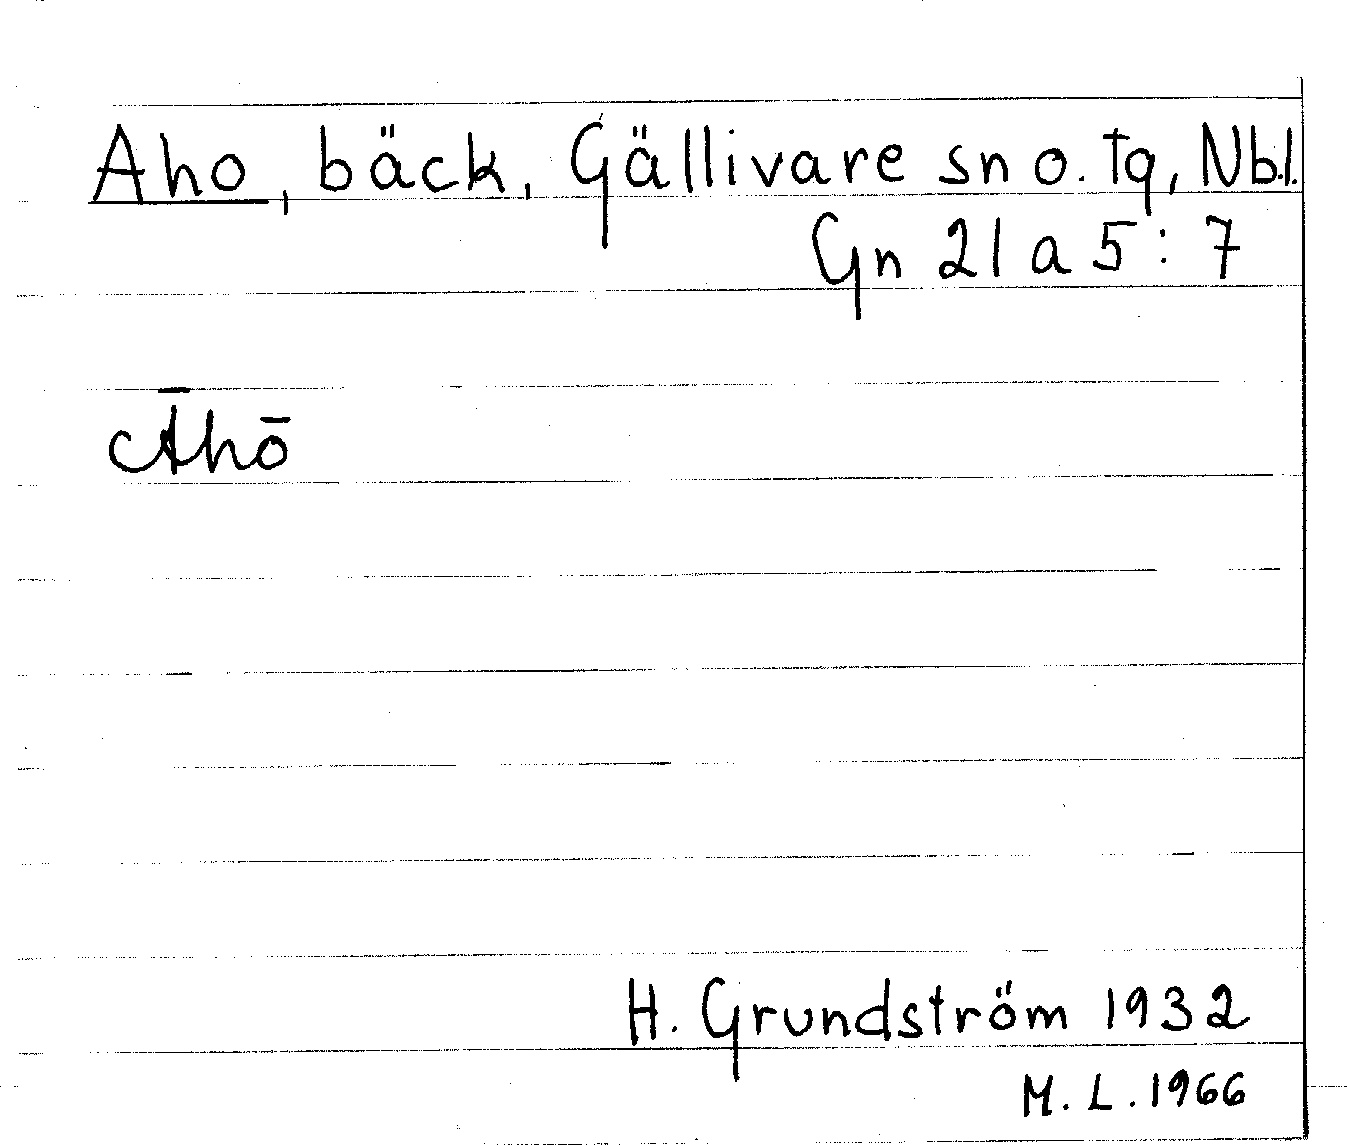 Aho, bäck, Gällivare sn o. tg, Nbl.
Gn 21 a 5:7
Āhō
H. Grundström 1932
M. L. 1966